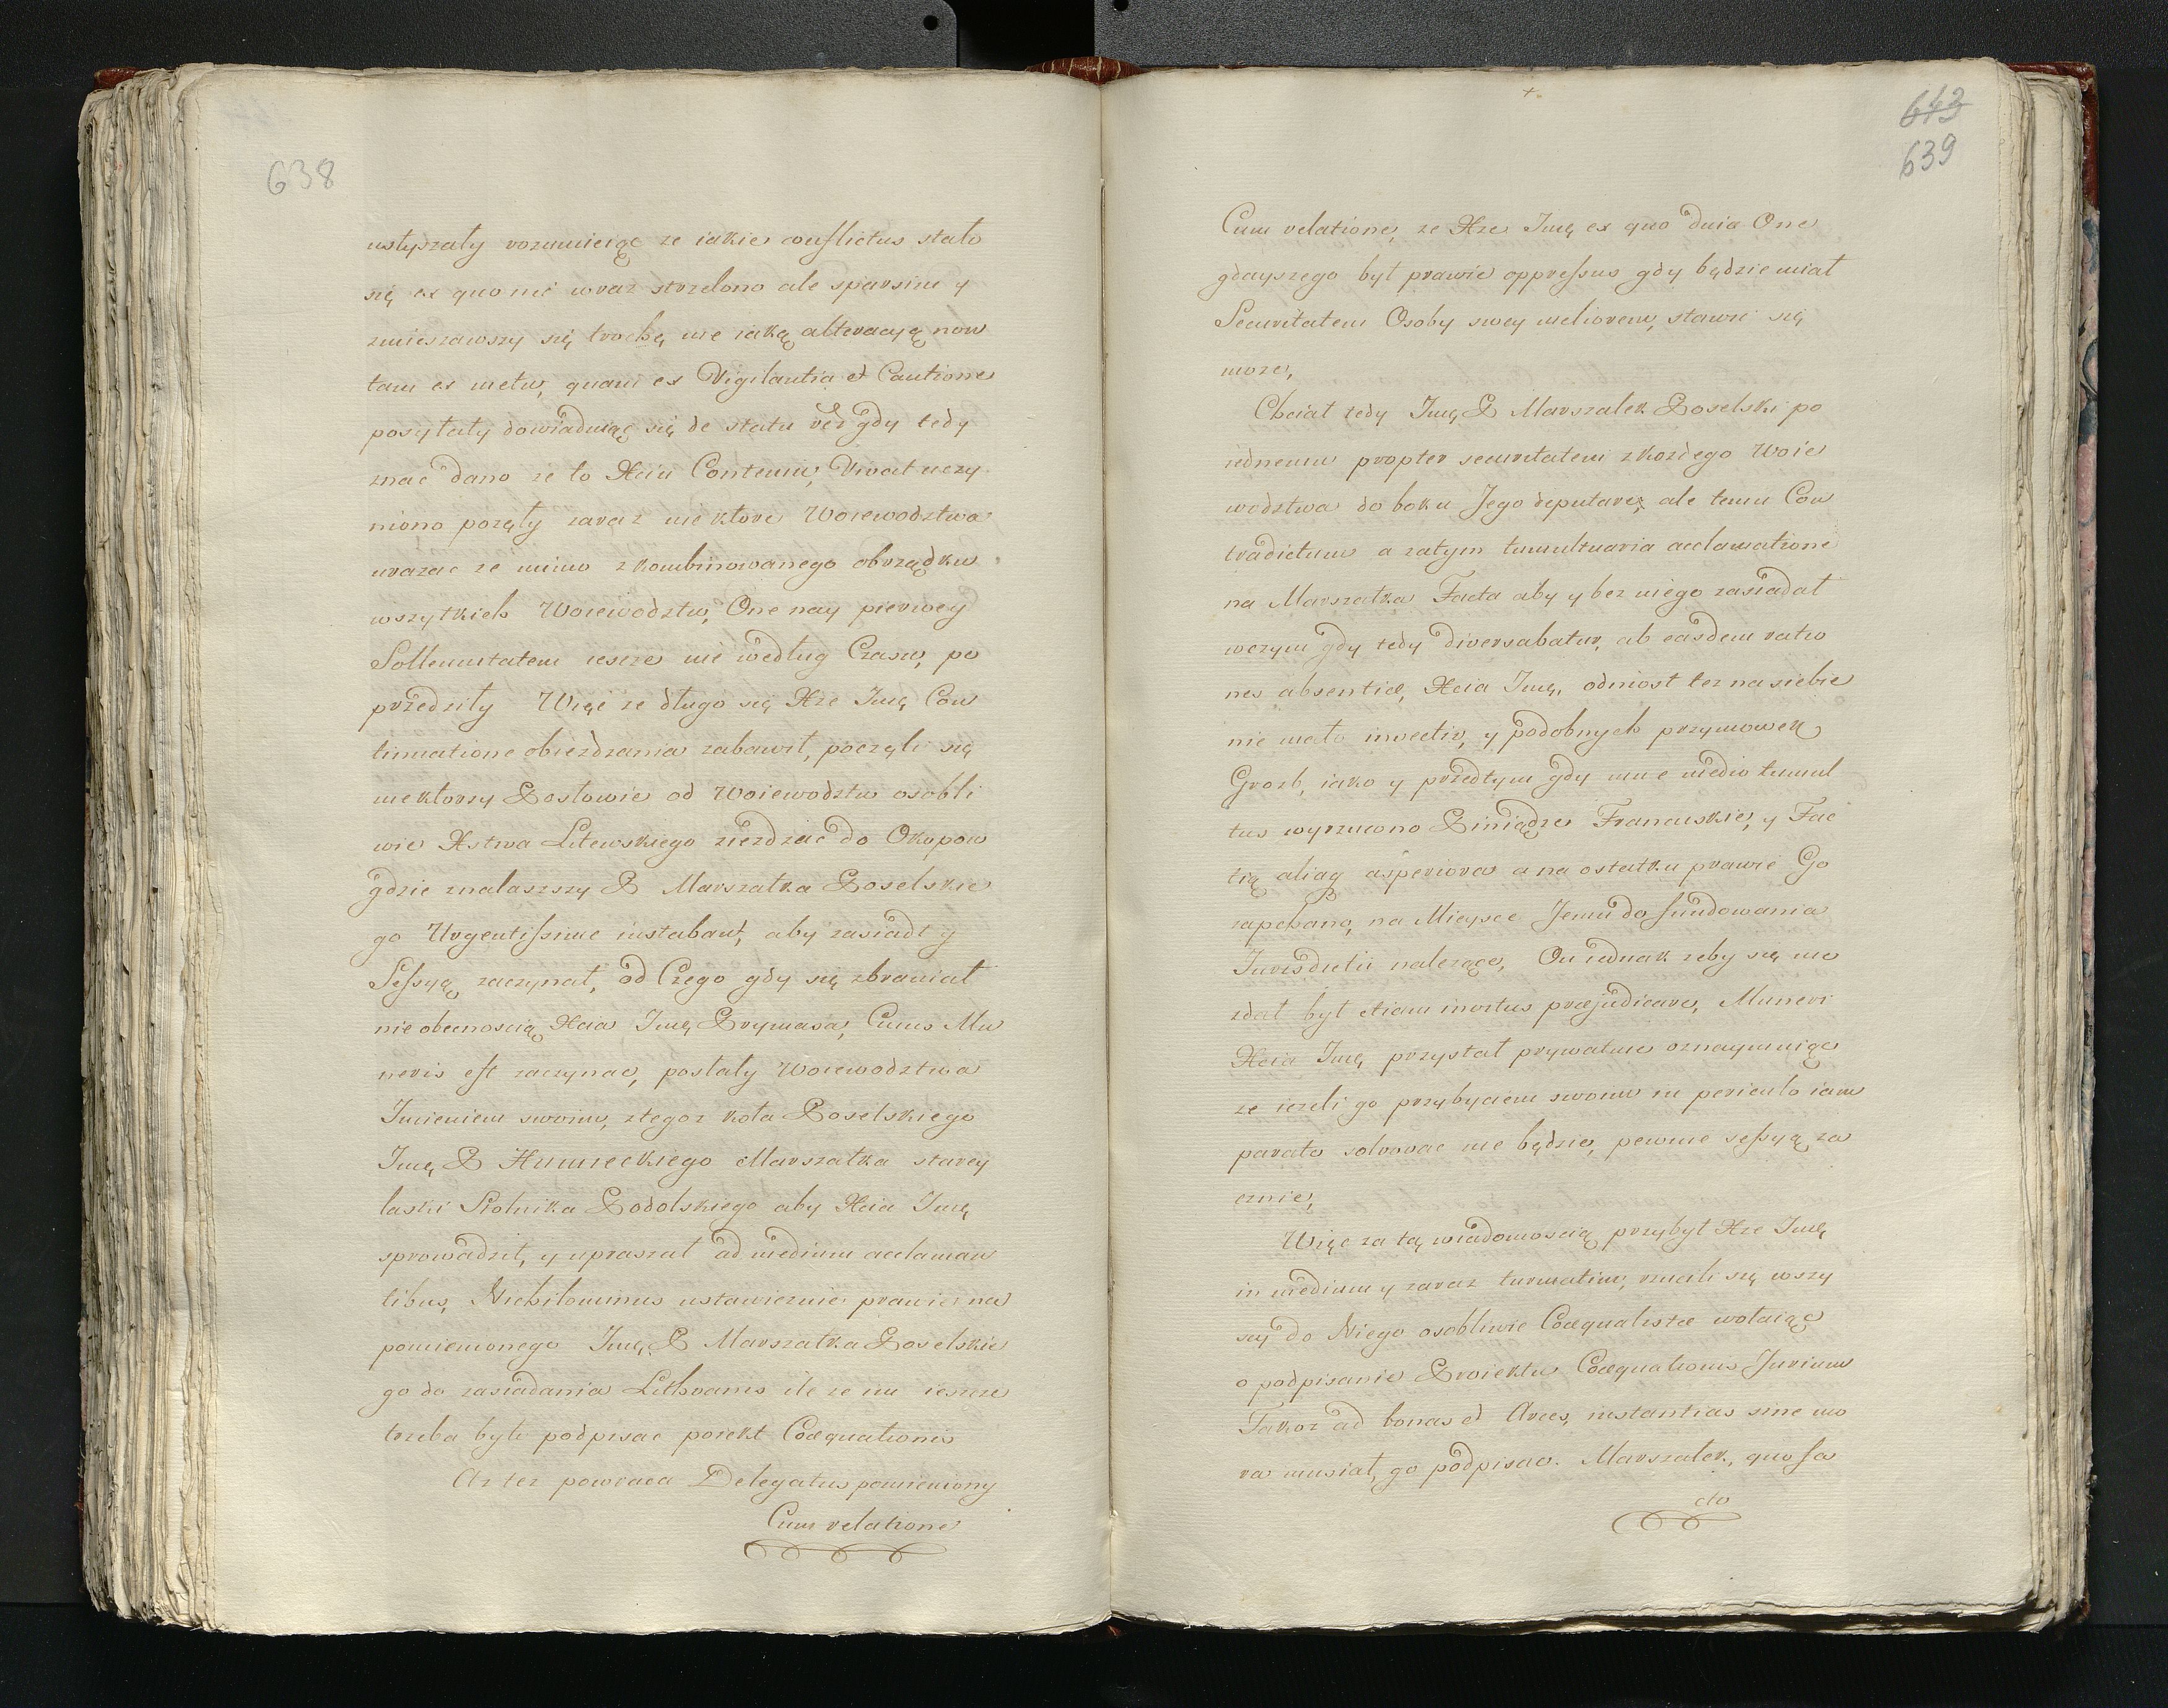 638
usłyszały rozumieiąc ze iakie conflictus stało
się ex quo nie wraz strzelono ale sparsim y
zmieszawszy się trochę nie iaką alteracyą now
tam ex metu, quam ex Vigilantia et Cautione
posyłały dowiaduiąc się de statu rei gdy tedy
znac dano ze to Xciu Contenui, Vivat uczy
niono poczęły zaraz niektore Woiewodztwa
urazac ze mimo zkombinowanego obrządku
wszytkich Woiewodztw, One nay pierwey
Sollemnitatem ieszcze nie według Czasu, po
przedziły Więc ze długo się Xże Jmę Con
tinuatione obiezdzania zabawił, poczęli się
niektorzy Posłowie od Woiewodztw osobli
wie Xstwa Litewskiego ziezdzac do Okopow
gdzie znalaszszy P Marszałka Poselskie
go Urgentissime instabant, aby zasiadł y
Sessyą zaczynał, od Czego gdy się zbraniał
nie obecnoscią Xcia Jmę Prymasa, Cuius Mu
neris est zaczynac, posłały Woiewodztwa
Imieniem swoim, ztegoz koła Poselskiego
Jmę P Humieckiego Marszałka starey
laski Stolnika Podolskiego aby Xcia Jmę
sprowadził, y upraszał ad medium acclaman
tibus, Nichilominus ustawicznie prawie na
pomienionego Jmę P Marszałka Poselskie
go do zasiadania Lithvanis ile ze im ieszcze
trzeba było podpisac poiekt Coæquationis
Az tez powraca Delegatus pomieniony
Cum relatione
643
639
Cum relatione, ze Xże Jmę ex quo dnia One
gdayszego był prawie oppressus gdy będzie miał
Securitatem Osoby swey meliorem, stawic się
moze,
Chciał tedy Jmę P Marszałek Poselski po
iednemu propter securitatem zkozdego Woie
wodztwa do boku Jego deputare, ale temu Con
tradictum a zatym tumultuaria acclamatione
na Marszałka Facta aby y bez niego zasiadał
wczym gdy tedy diversabatur, ab easdem ratio
nes absentiæ, Xcia Jmę, odniosł tez na siebie
nie mało invectiv, y podobnych przymowek
Grozb, iako y przedtym gdy mu e medio tumul
tus wyrzucono Piniądze Francuskie, y Fac
tią aliaq asperiora a na ostatku prawie Go
zapchano, na Mieysce Jemu do fundowania
Jurisdictii nalezące, On iednak zeby się nie
zdał był etiam invitus præjudicare, Muneri
Xcia Jmę przystał prywatnie oznaymuiąc
ze iezeli go przybyciem swoim in periculo iam
parato salvowac nie będzie, pewnie sessyą za
cznie,
Więc za tą wiadomoscią przybył Xże Jmę
in medium y zaraz turmatim, rzucili się wszy
scy do Niego osobliwie Coæqualistæ wołaiąc
o podpisanie Proiektu Coæquationis Jurium
Takoz ad bonas et instantias sine mo
ra musiał, go podpisac. Marszałek, quo fa
cto